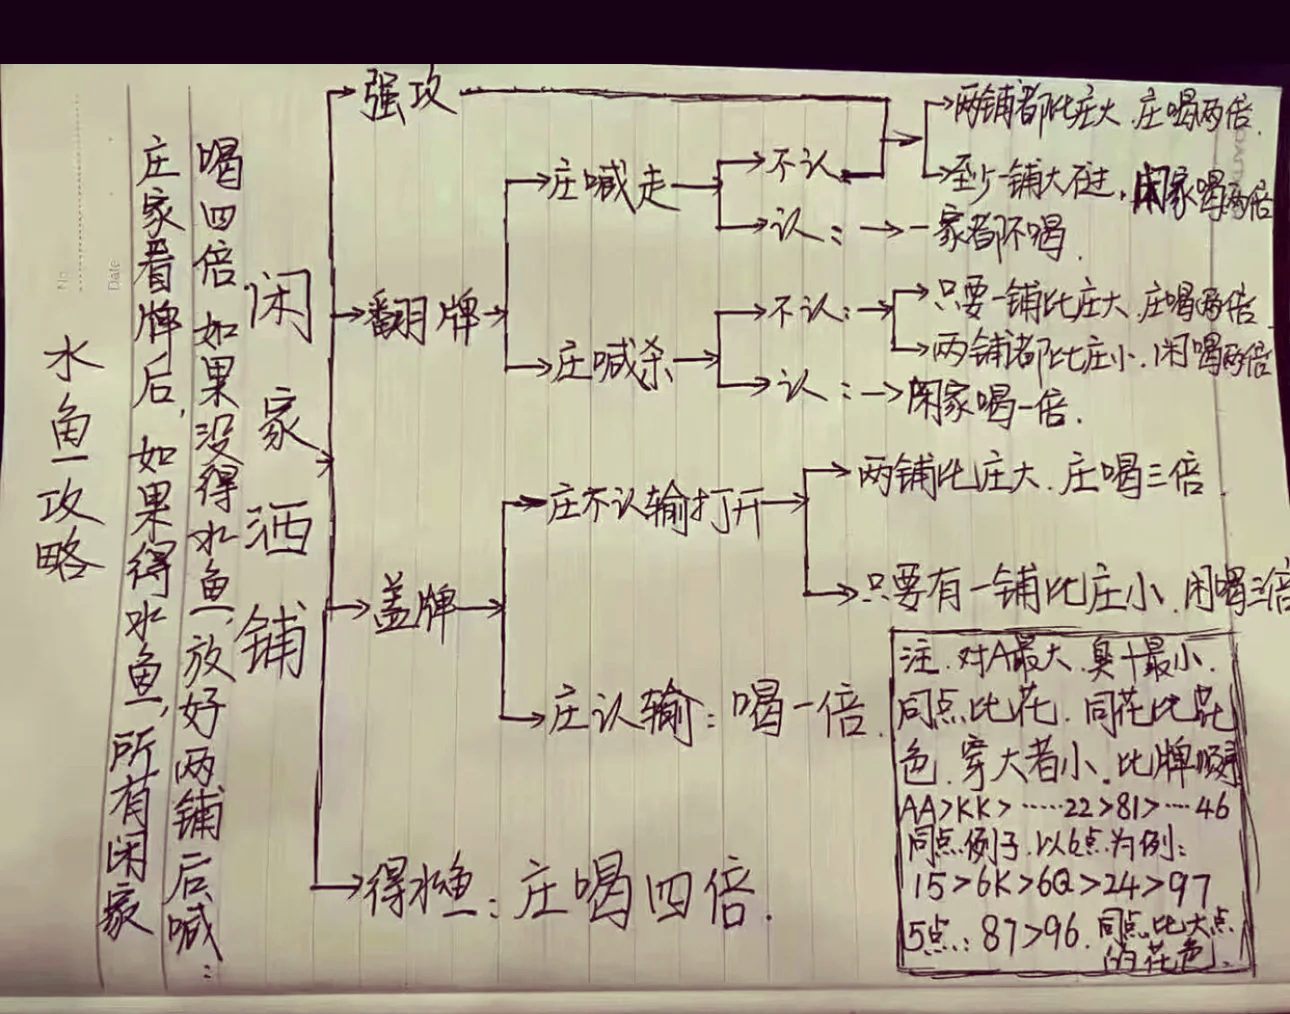 水鱼攻略
庄家看牌后,如果得水鱼,所有闲家
喝四倍如果没得水鱼,放好两铺后喊:
闲家洒铺
强攻
两铺都比庄大.庄喝两倍.
至少一铺大不过,闲家喝两倍
翻牌
庄喊走
不认
认:
一家都不喝.
庄喊杀
不认:
只要一铺比庄大.庄喝两倍.
两铺都比庄小.闲喝两倍
认:
闲家喝一倍.
盖牌
庄不认输打开
两铺比庄大.庄喝三倍.
只要有一铺比庄小.闲喝三倍
庄认输:喝一倍.
得水鱼:庄喝四倍.
注.对A最大.臭十最小.
同点比花.同花比花
色.穿大者小.比牌顺序
AA>KK>……22>81>…46
同点例子.以6点为例:
15>6K>6Q>24>97
5点:87>96.同点比大点
的花色.
No
Date